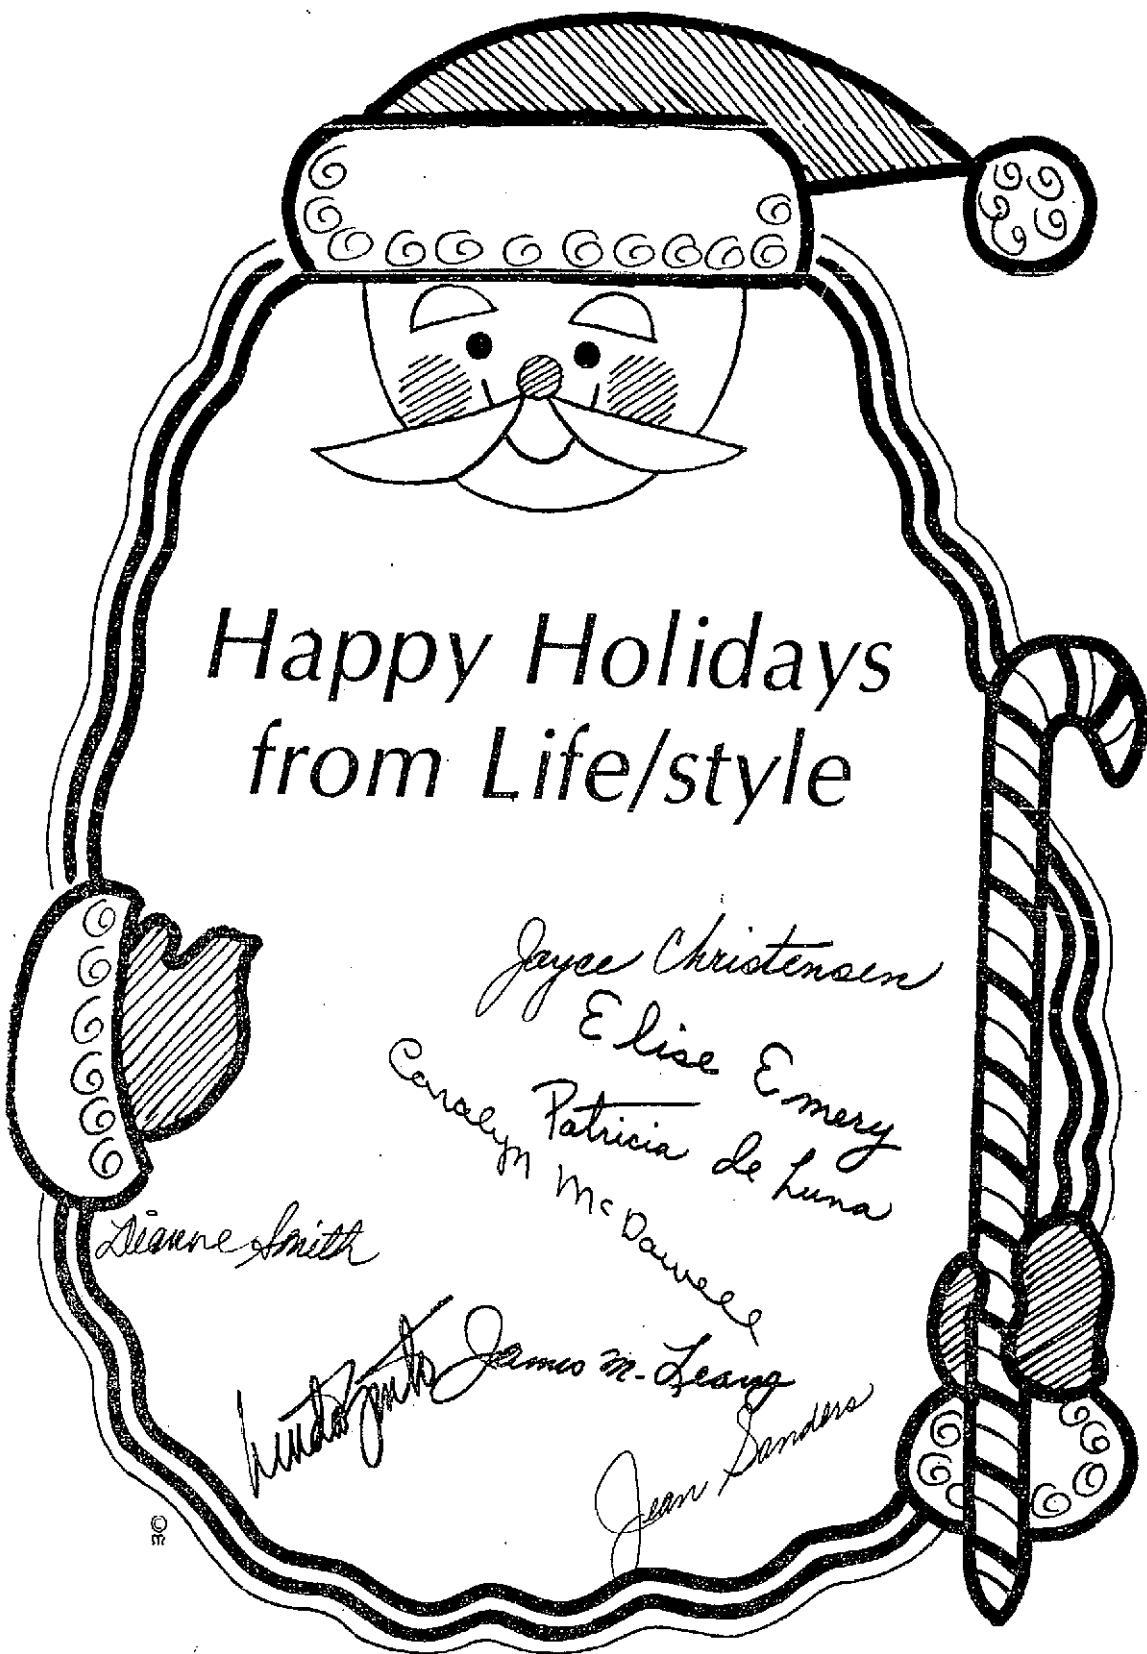 Happy Holidays
from Life/style
Jayce Christensen
Elise Emery
Patricia de Luna
Carolyn McDowell
Dianne Smith
Linda Zink
James M. Leavy
Jean Sanders
©
m